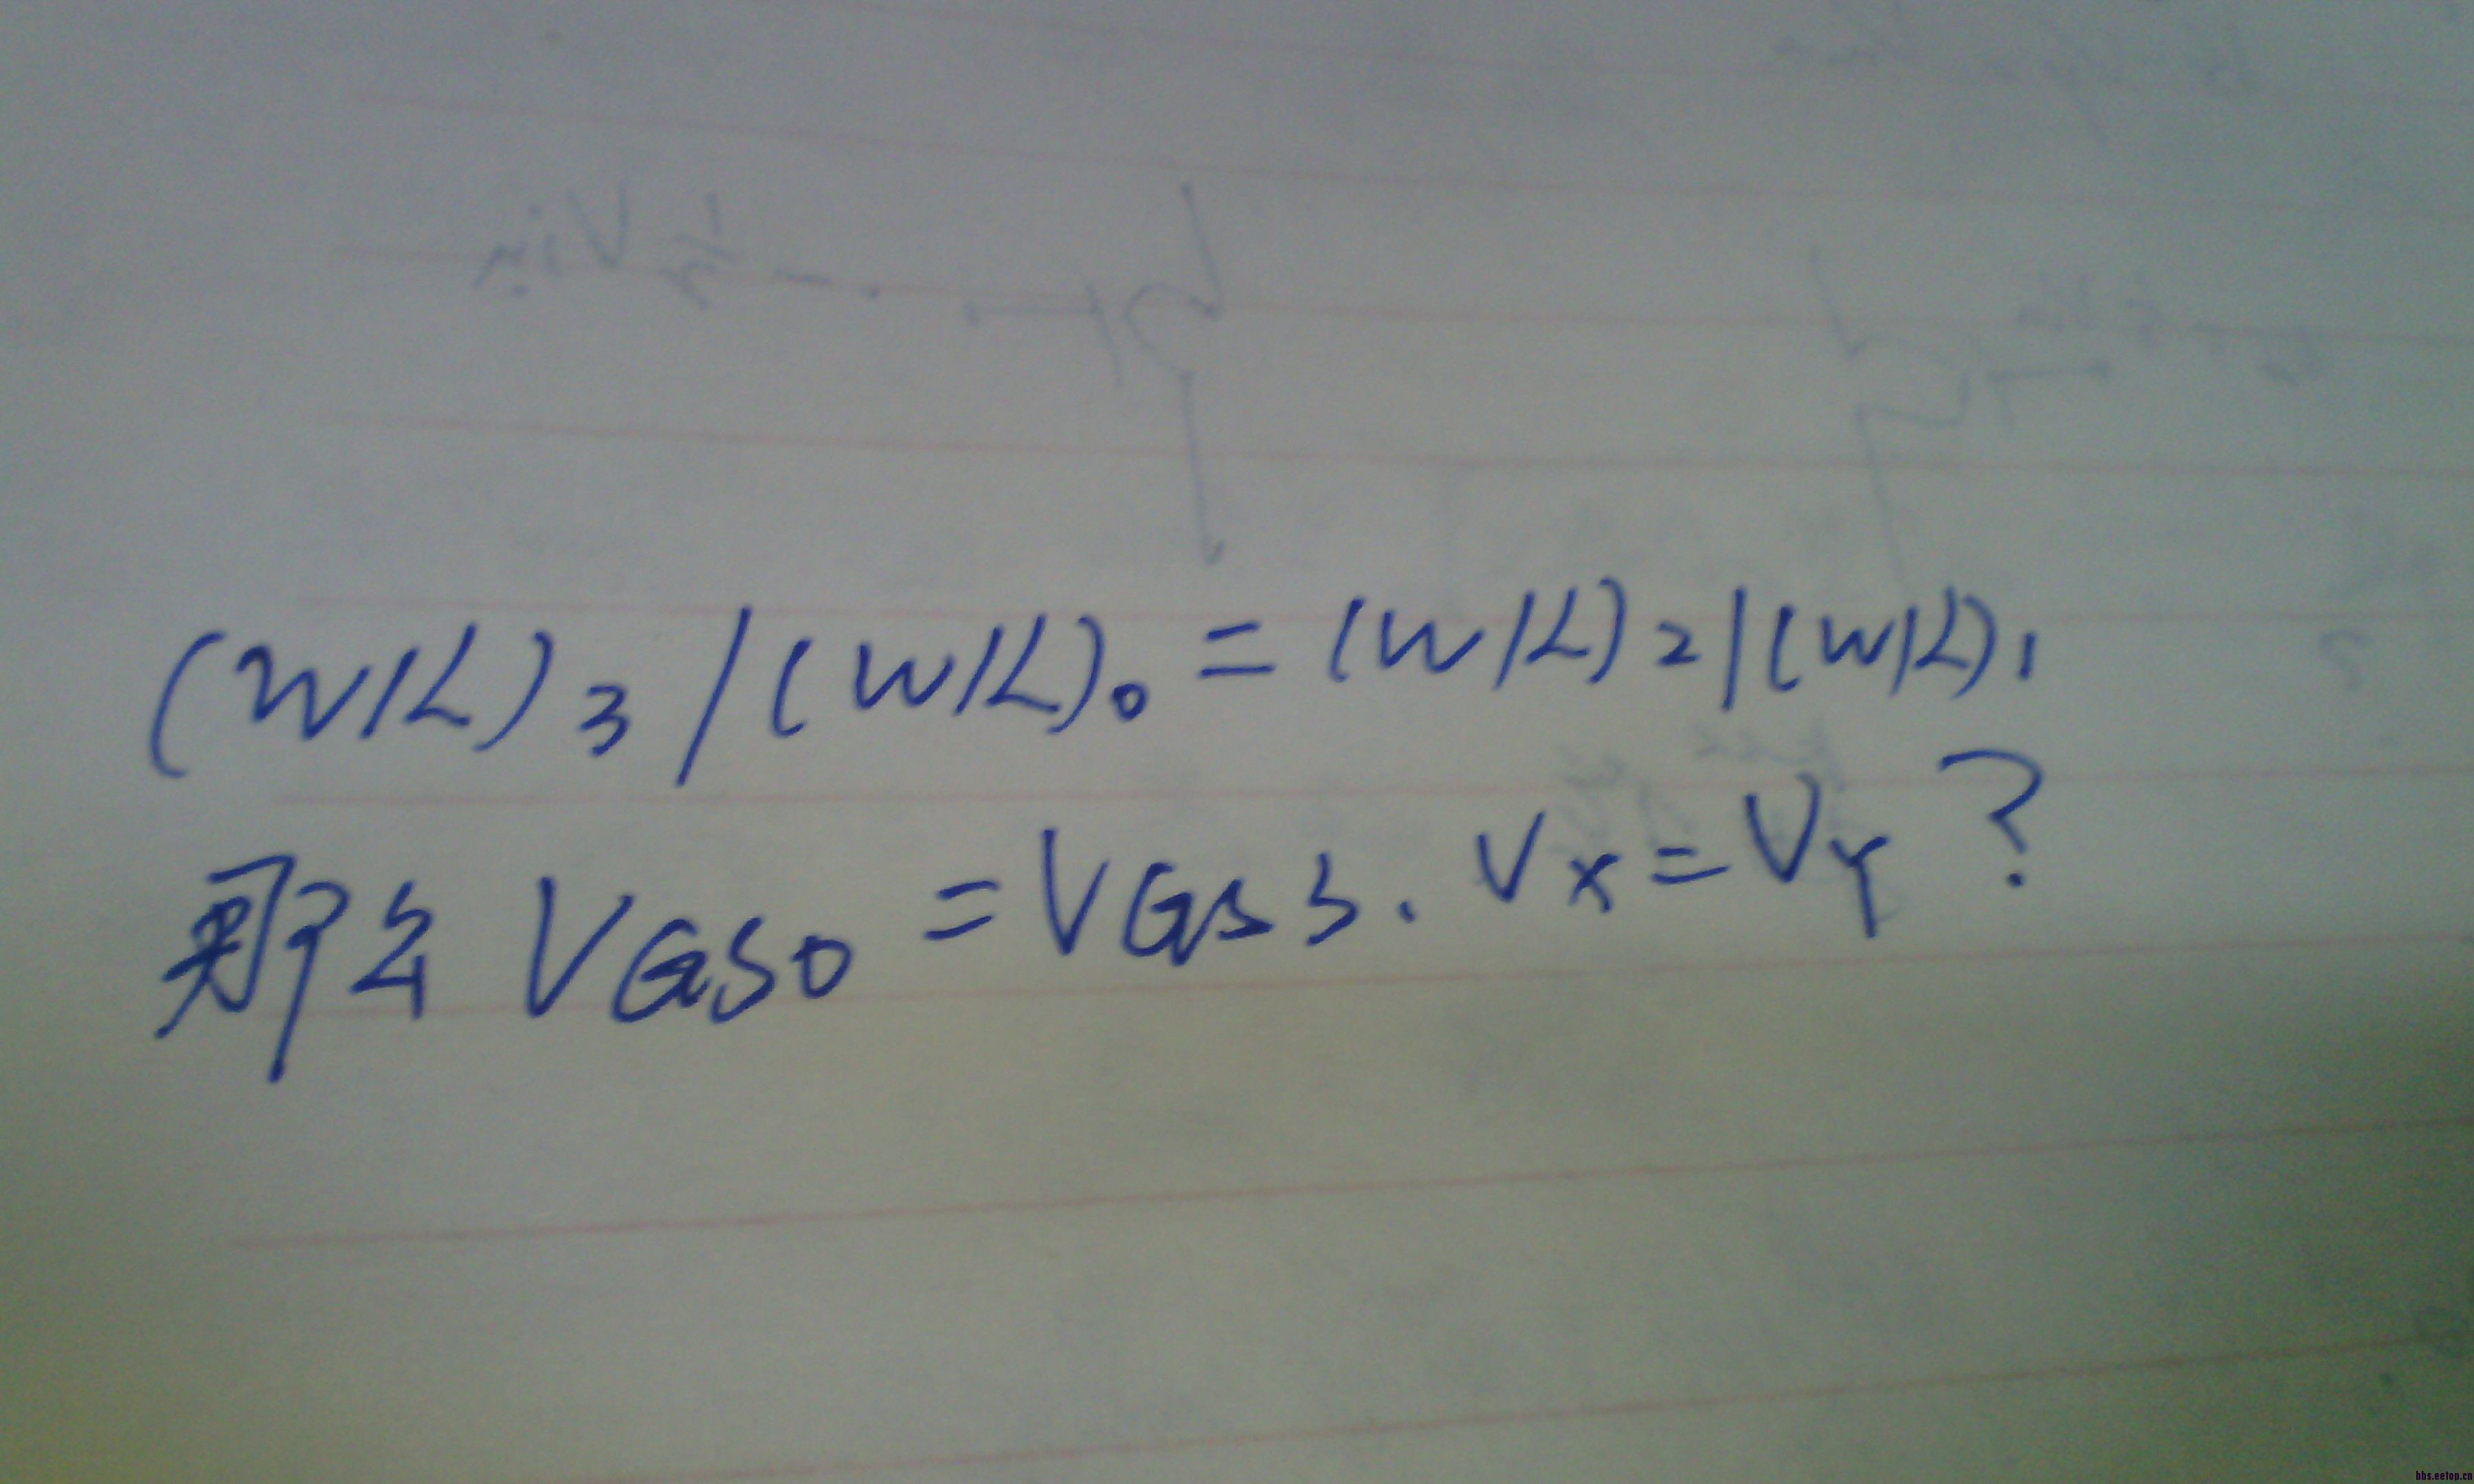 (W/L)3/(W/L)0=(W/L)2/(W/L)1
那么 VGS0=VGS3. VX=VY?
bbs.eetop.cn